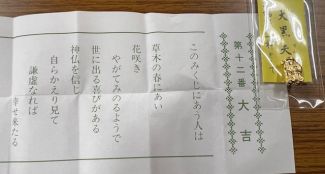 第十二番 大吉
このみくじにあう人は
草木の春にあい
花咲き
やがてみのるようで
世に出る喜びがある
神仏を信じ
自らかえり見て
謙虚なれば
幸せ来たる
大黒天